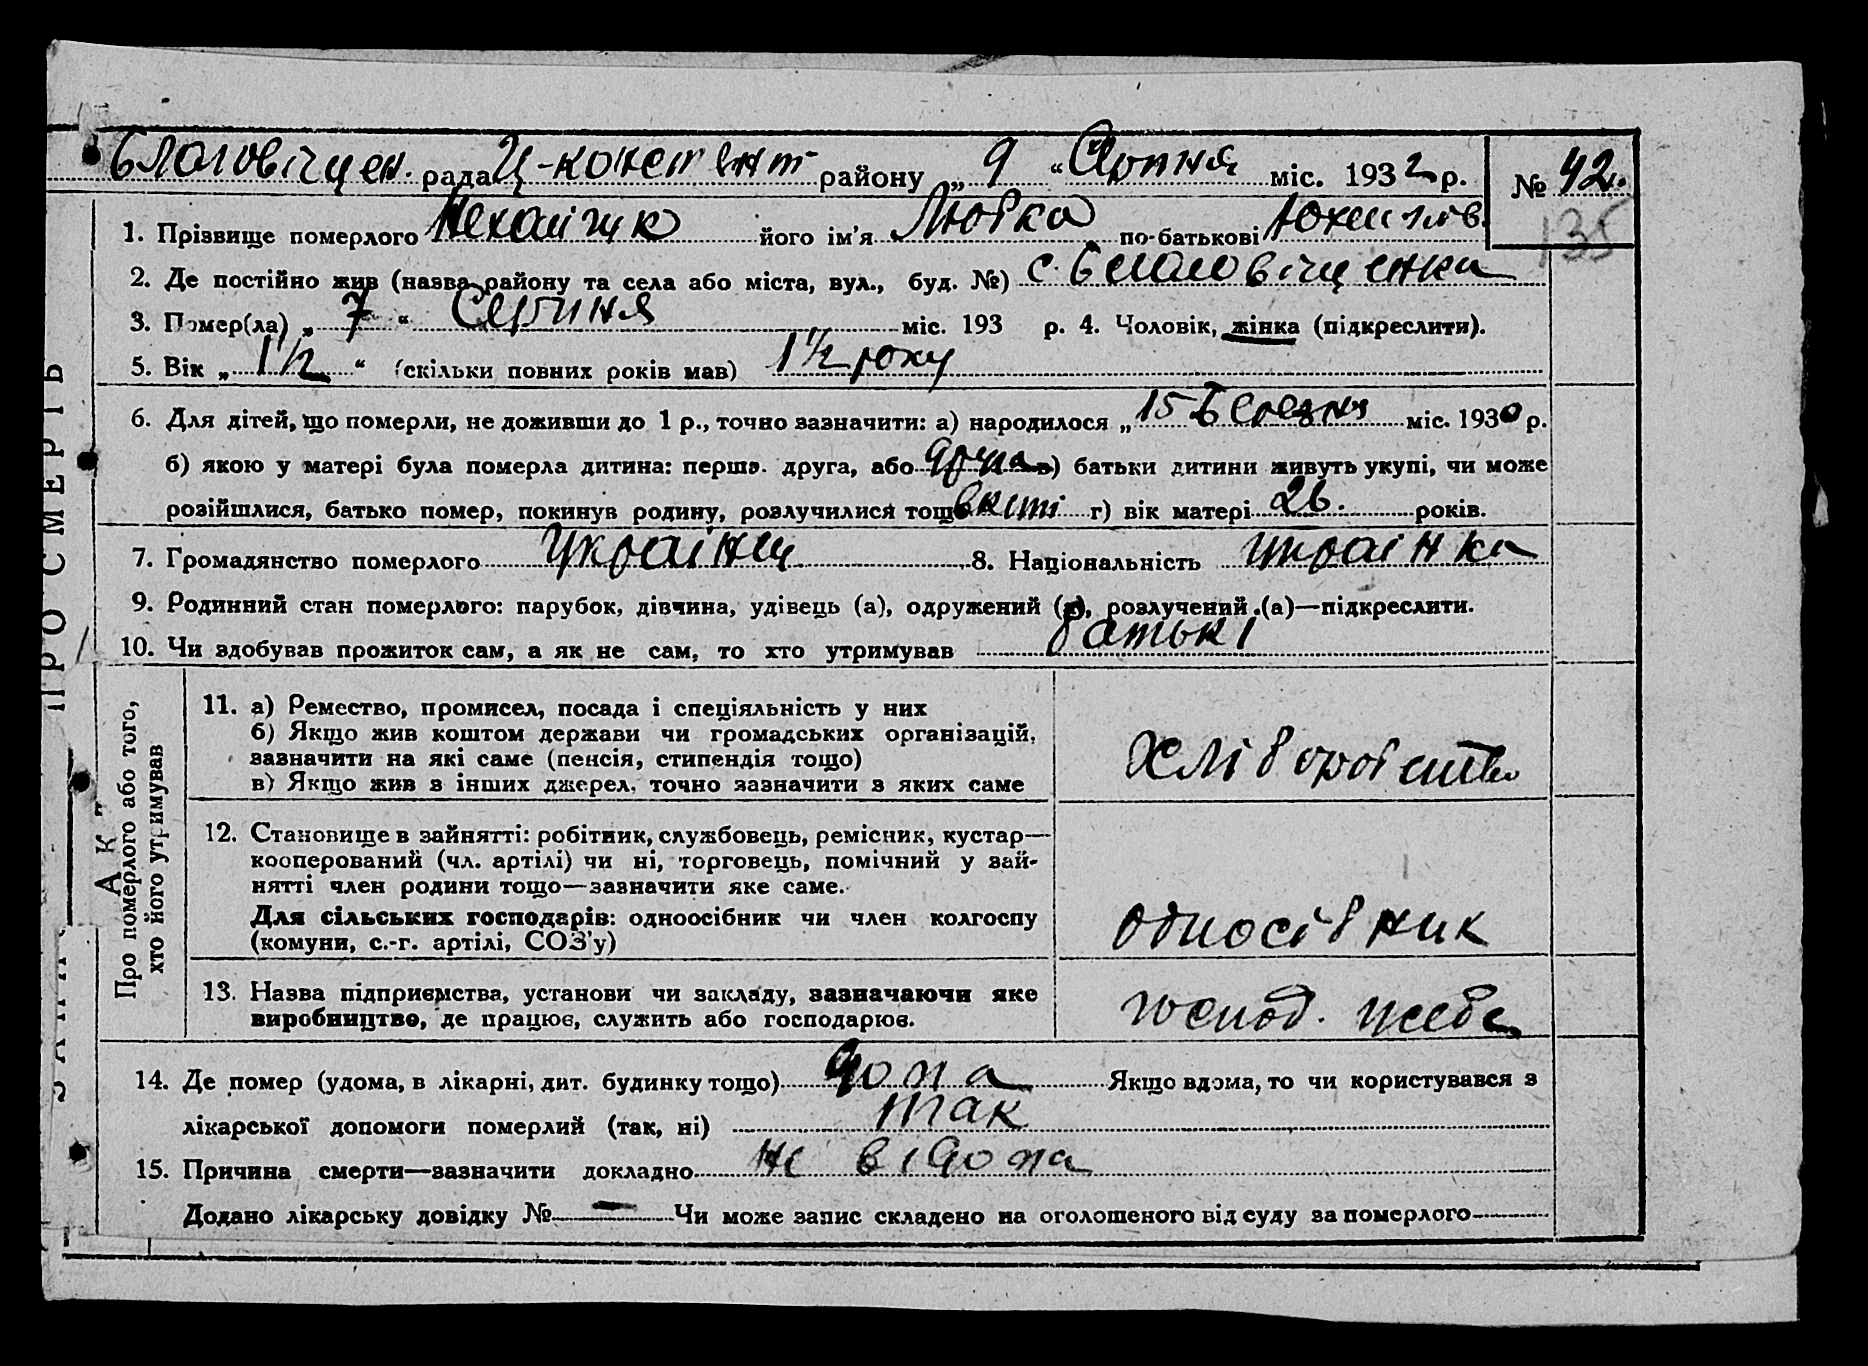 Благовіщен. рада Ц-констент району „ 9 “ Серпня міс. 1932 р. № 42.
1. Прізвище померлого його ім'я Любка по-батькові 135
2. Де постійно жив (назва району та села або міста, вул., буд. №) с. Благовіщенка
3. Помер(ла) „ 7 “ Серпня міс. 193 р. 4. Чоловік, жінка (підкреслити).
5. Вік „ 1½ “ (скільки повних років мав) 1½ року
6. Для дітей, що померли, не доживши до 1 р., точно зазначити: а) народилося „ 15 Березня міс. 1930 р.
б) якою у матері була померла дитина: перша, друга, або друга в) батьки дитини живуть укупі, чи може
розійшлися, батько помер, покинув родину, розлучилися тощо г) вік матері 26. років.
7. Громадянство померлого 8. Національність українка
9. Родинний стан померлого: парубок, дівчина, удівець (а), одружений (а), розлучений (а)—підкреслити.
10. Чи здобував прожиток сам, а як не сам, то хто утримував батькі
ПРО СМЕРТЬ
АКТ
Про померлого або того,
хто його утримував
11. а) Ремество, промисел, посада і спеціяльність у них
б) Якщо жив коштом держави чи громадських організацій,
зазначити на які саме (пенсія, стипендія тощо)
в) Якщо жив з інших джерел, точно зазначити з яких саме
хліборобство
12. Становище в зайнятті: робітник, службовець, ремісник, кустар—
кооперований (чл. артілі) чи ні, торговець, помічний у зай-
нятті член родини тощо—зазначити яке саме.
Для сільських господарів: одноосібник чи член колгоспу
(комуни, с.-г. артілі, СОЗ'у)
односібник
13. Назва підприємства, установи чи закладу, зазначаючи яке
виробництво, де працює, служить або господарює.
господ. у себе
14. Де помер (удома, в лікарні, дит. будинку тощо) дома Якщо вдома, то чи користувався з
лікарської допомоги померлий (так, ні) так
15. Причина смерти—зазначити докладно не відома
Додано лікарську довідку № — Чи може запис складено на оголошеного від суду за померлого